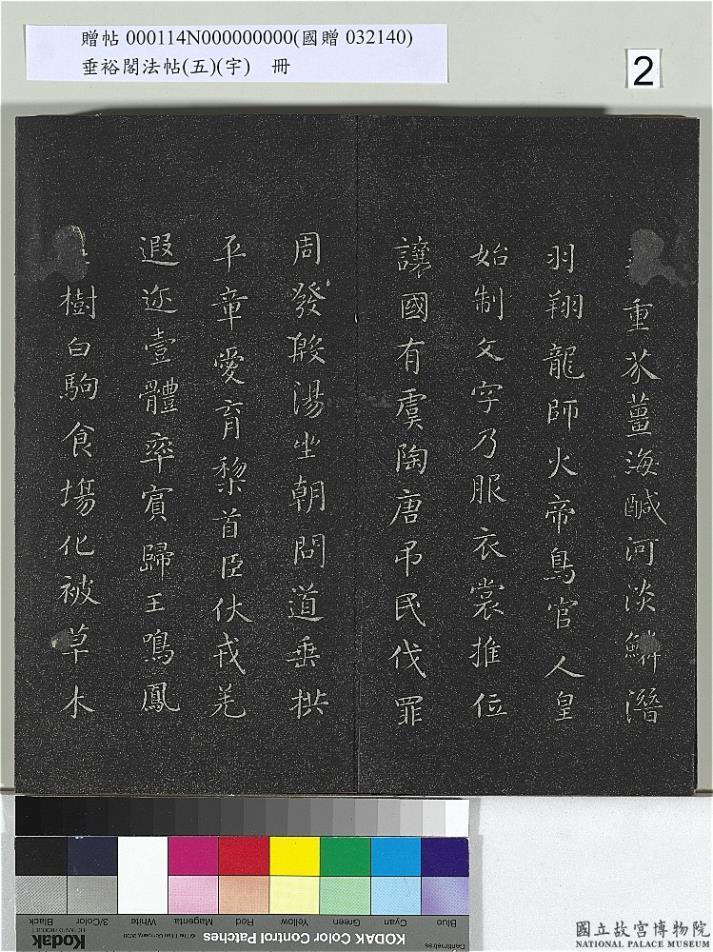 贈帖 000114N000000000(國贈 032140)
垂裕閣法帖(五)(宇) 冊
2
重芥薑海醎河淡鱗潛
羽翔龍師火帝鳥官人皇
始制文字乃服衣裳推位
讓國有虞陶唐吊民伐罪
周發殷湯坐朝問道垂拱
平章愛育黎首臣伏戎羌
遐迩壹體率賓歸王鳴鳳
樹白駒食場化被草木
Blue Cyan Green Yellow Red Magenta White 3/Color Black
Centimetres
KODAK Color Control Patches
Kodak
國立故宮博物院
NATIONAL PALACE MUSEUM